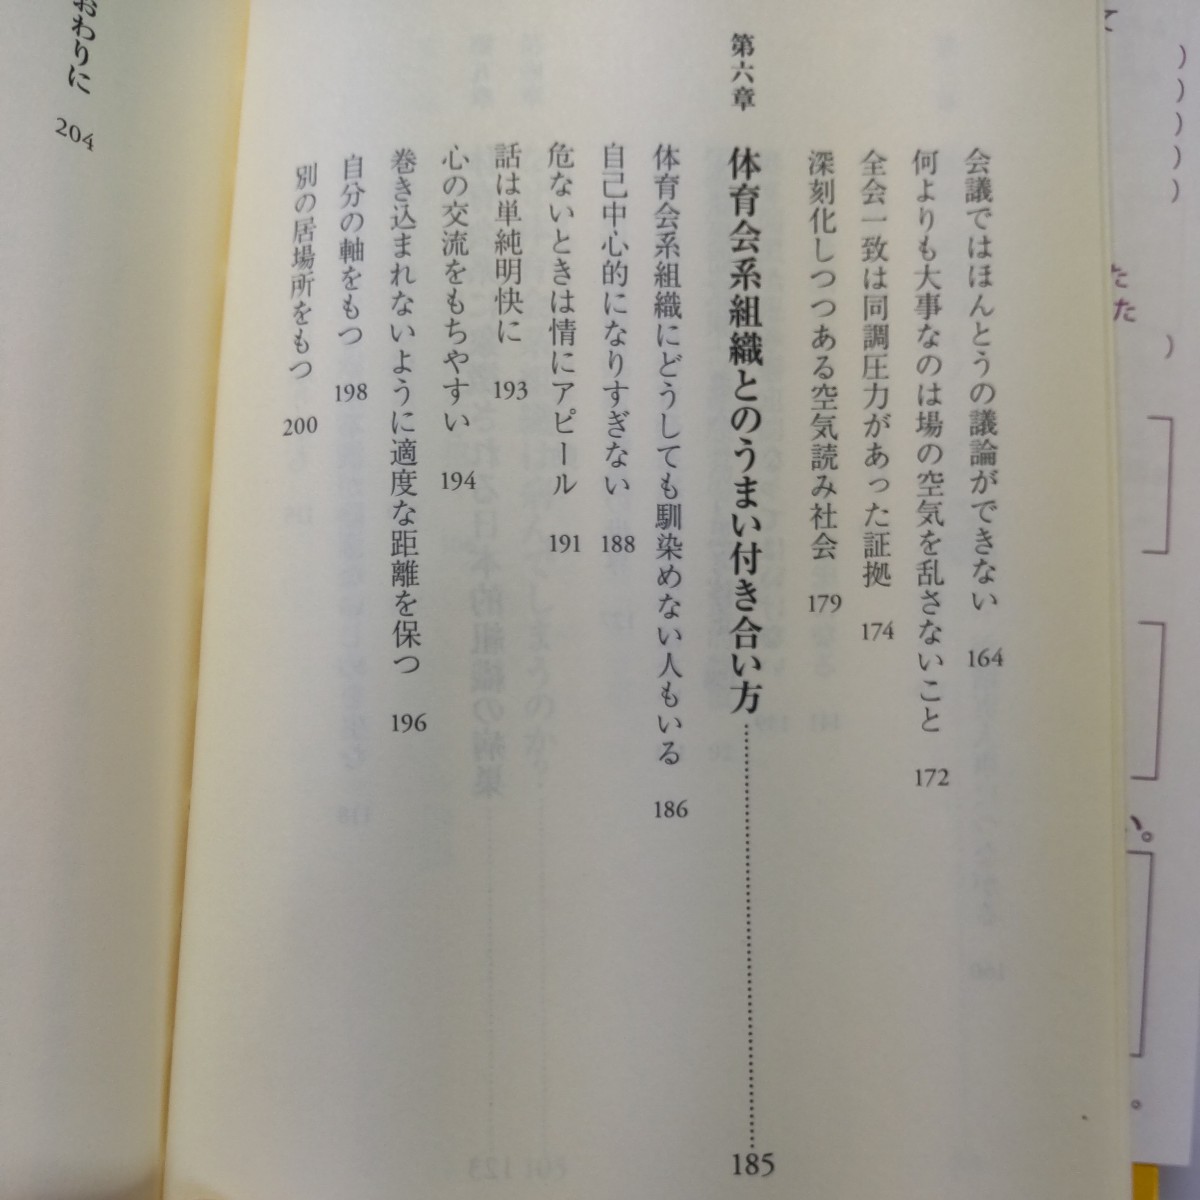 会議ではほんとうの議論ができない 164
何よりも大事なのは場の空気を乱さないこと 172
全会一致は同調圧力があった証拠 174
深刻化しつつある空気読み社会 179
第六章 体育会系組織とのうまい付き合い方 185
体育会系組織にどうしても馴染めない人もいる 186
自己中心的になりすぎない 188
危ないときは情にアピール 191
話は単純明快に 193
心の交流をもちやすい 194
巻き込まれないように適度な距離を保つ 196
自分の軸をもつ 198
別の居場所をもつ 200
おわりに 204